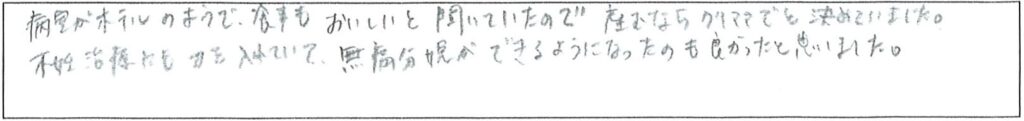 病室がホテルのようで、食事もおいしいと聞いていたので産むならクリママでと決めていました。
不妊治療にも力を入れていて、無痛分娩ができるようになったのも良かったと思いました。